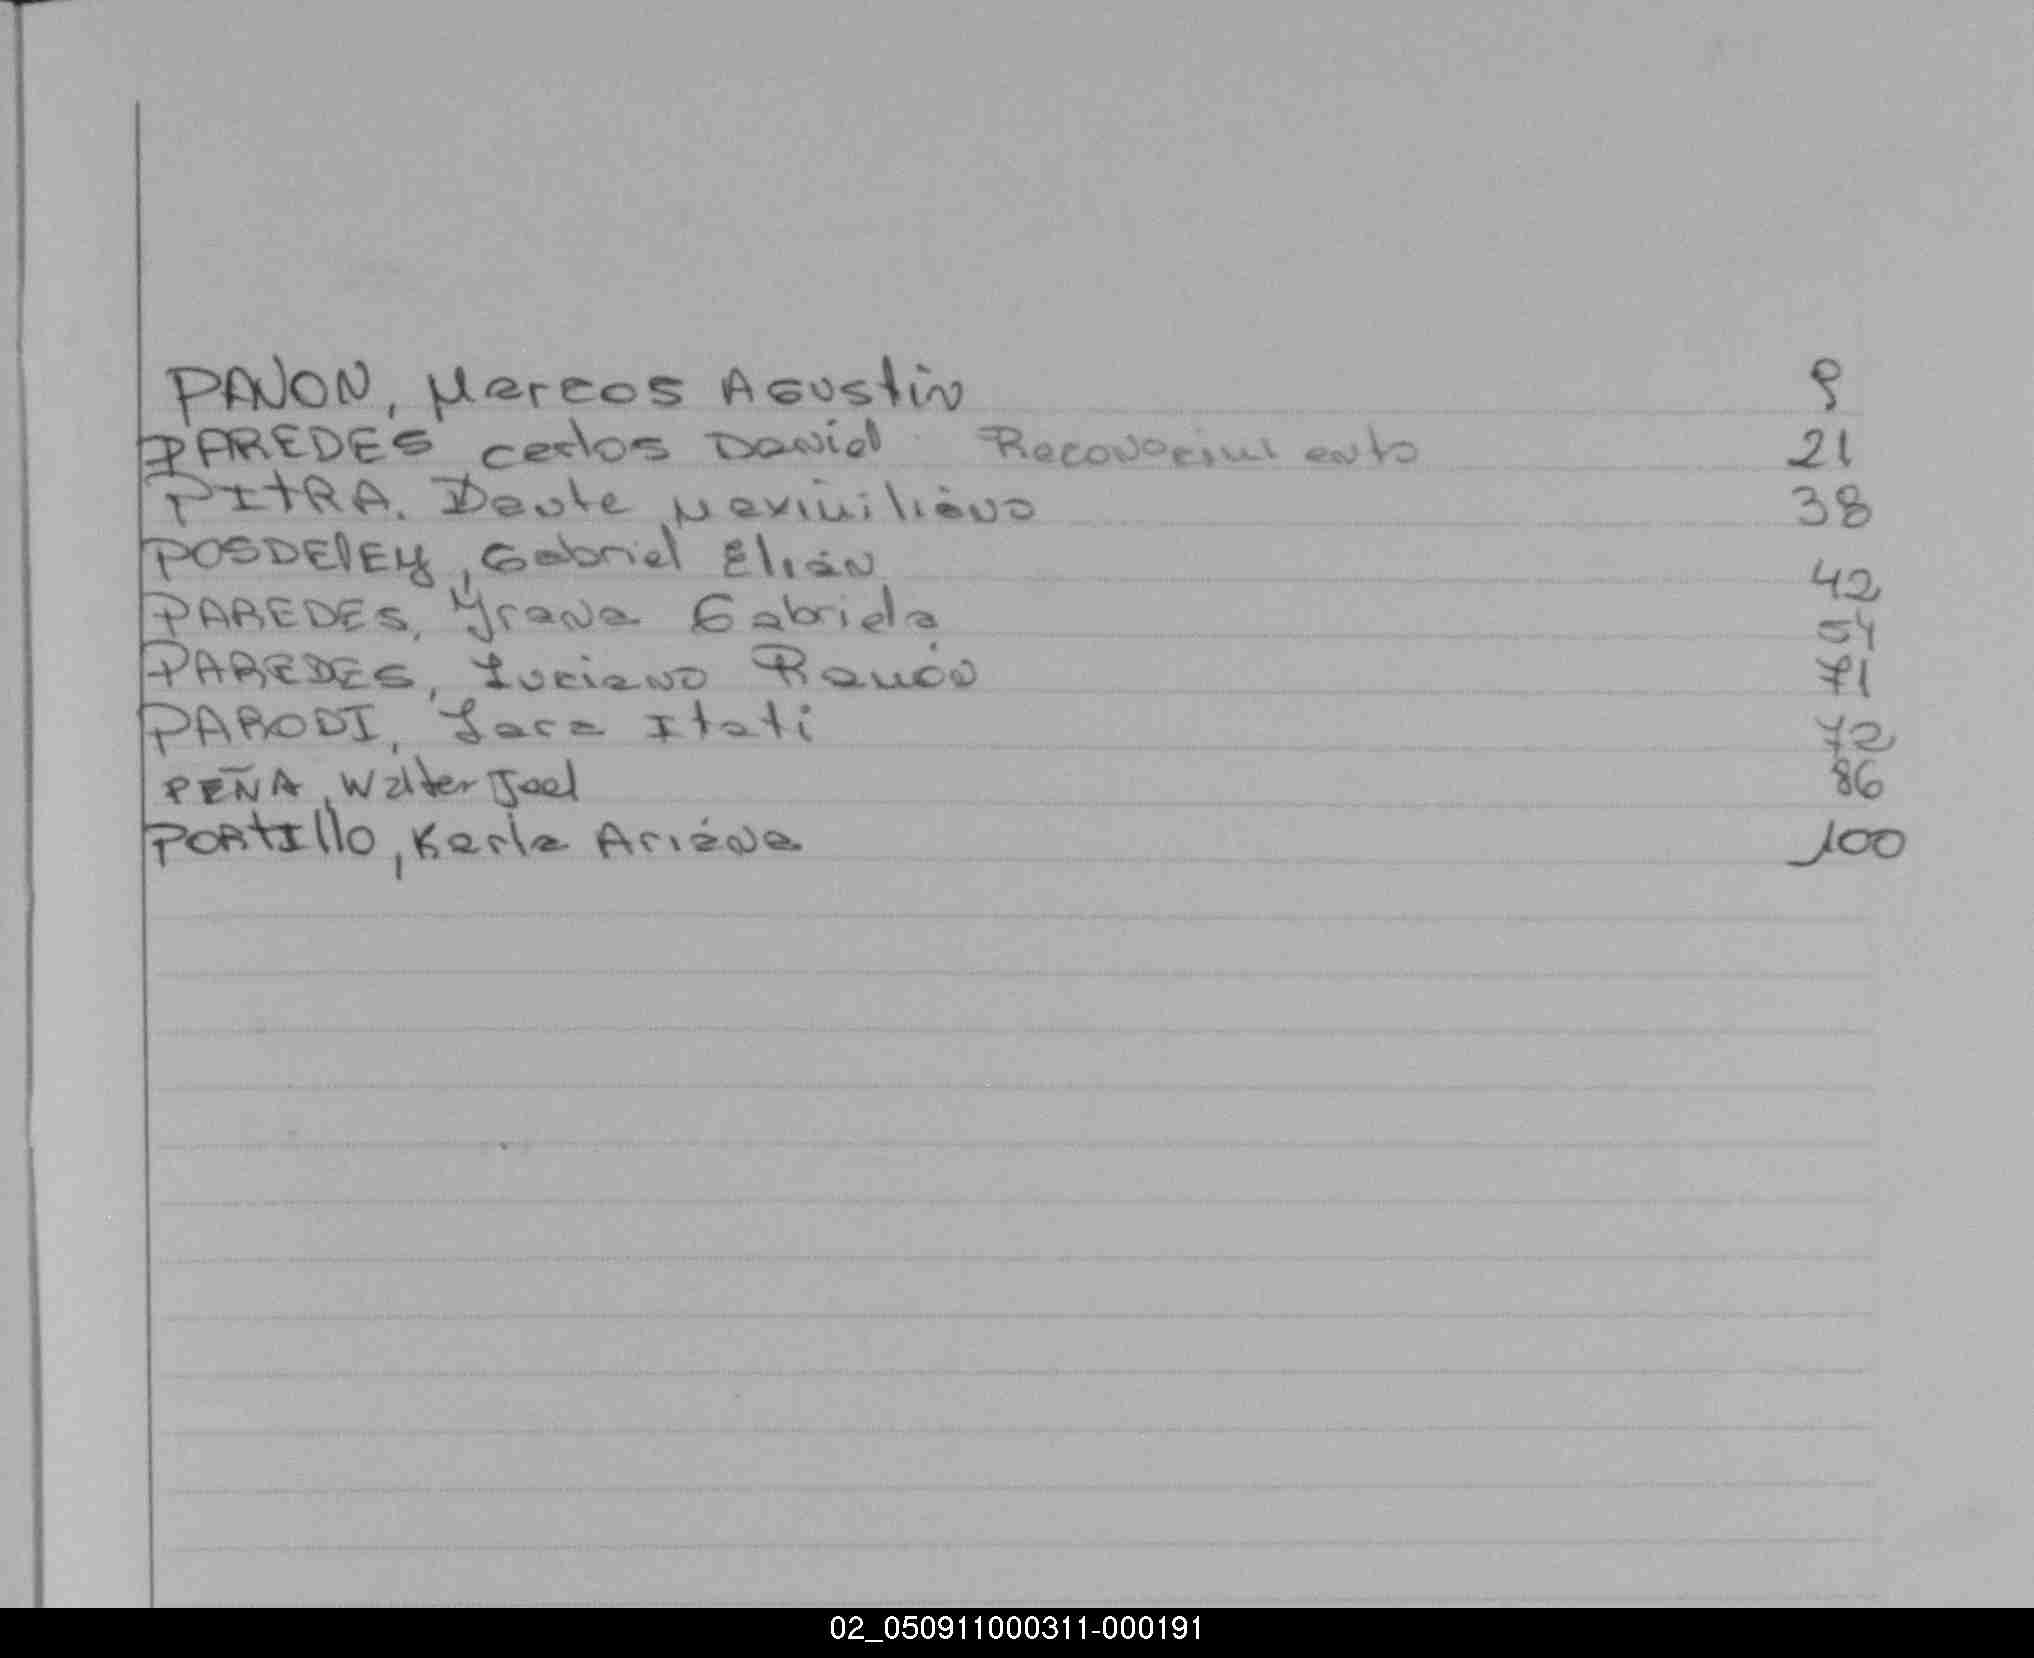 PANON, Marcos Agustin 9
PAREDES Carlos Daniel Reconocimiento 21
PITRA. Dante Maximiliano 38
POSDELEY, Gabriel Elián 42
PAREDES, Yrana Gabriela 54
PAREDES, Luciano Ramón 71
PARODI, Lara Itati 72
PEÑA, Walter Joel 86
PORTILLO, Karla Ariana 100
02_050911000311-000191